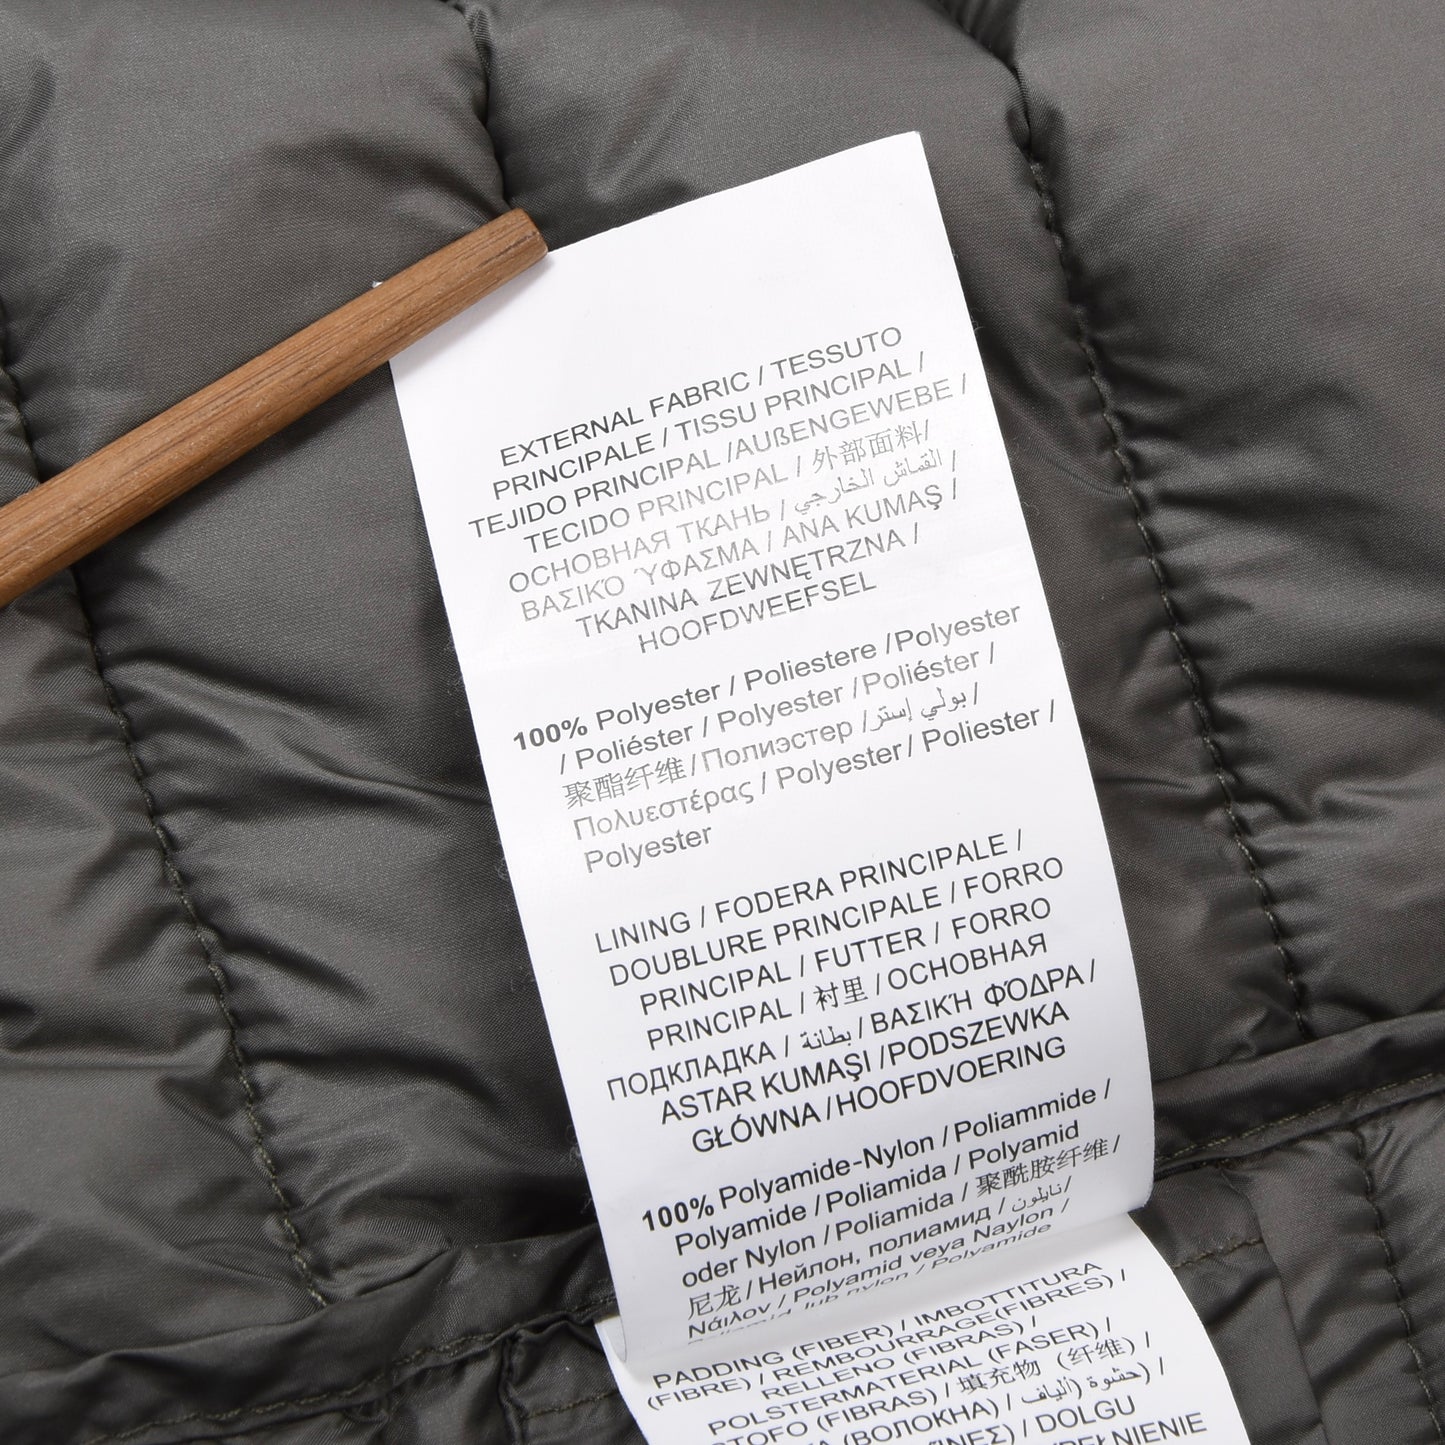 EXTERNAL FABRIC / TESSUTO
PRINCIPALE / TISSU PRINCIPAL /
TEJIDO PRINCIPAL /AUßENGEWEBE /
TECIDO PRINCIPAL / 外部面料/
ОСНОВНАЯ ТКАНЬ / القماش الخارجي /
ΒΑΣΙΚΌ ΎΦΑΣΜΑ / ANA KUMAŞ /
TKANINA ZEWNĘTRZNA /
HOOFDWEEFSEL
100% Polyester / Poliestere /Polyester
/ Poliéster / Polyester /Poliéster /
聚酯纤维/Полиэстер /بولي إستر /
Πολυεστέρας / Polyester/ Poliester /
Polyester
LINING / FODERA PRINCIPALE /
DOUBLURE PRINCIPALE / FORRO
PRINCIPAL / FUTTER / FORRO
PRINCIPAL / 衬里 / ОСНОВНАЯ
ПОДКЛАДКА / بطانة / ΒΑΣΙΚΉ ΦΌΔΡΑ /
ASTAR KUMAŞI /PODSZEWKA
GŁÓWNA /HOOFDVOERING
100% Polyamide-Nylon / Poliammide /
Polyamide / Poliamida / Polyamid
oder Nylon / Poliamida / 聚酰胺纤维/
尼龙/Нейлон, полиамид / نايلون/
Νάιλον / Polyamid veya Naylon /
Poliamid lub nylon / Polyamide
PADDING (FIBER) / IMBOTTITURA
(FIBRE) / REMBOURRAGE(FIBRES) /
RELLENO (FIBRAS) /
POLSTERMATERIAL (FASER) /
(FIBRAS) / 填充物 (纤维) /
(ВОЛОКНА) / حشوة (ألياف) /
/ DOLGU